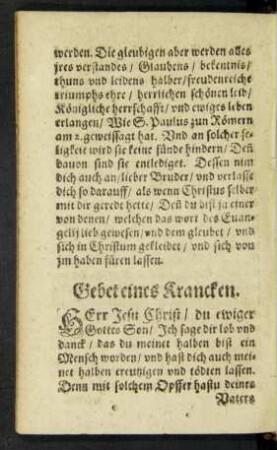 werden. Die gleubigen aber werden alles
jres verstandes / Glaubens / bekentnis/
thuns vnd leidens halber / freudenreiche
triumphs ehre / herrlichen schönen leid/
Königliche herrschafft / vnd ewiges leben
erlangen / Wie S. Paulus zun Römern
am 2. geweissagt hat. Vnd an solcher se-
ligkeit wird sie keine sünde hindern / Deñ
dauon sind sie entlediget. Dessen nim
dich auch an / lieber Bruder / vnd verlasse
dich so darauff / als wenn Christus selber
mit dir geredt hette / Deñ du bist ja einer
von denen / welchen das wort des Euan-
gelij lieb gewesen / vnd dem gleubet / vnd
sich in Christum gekleidet / vnd sich von
jm haben füren lassen.
Gebet eines Krancken.
HErr Jesu Christ / du ewiger
Gottes Son / Ich sage dir lob vnd
danck / das du meinet halben bist ein
Mensch worden / vnd hast dich auch mei-
net halben creutzigen vnd tödten lassen.
Denn mit solchem Opffer hastu deines
Vaters